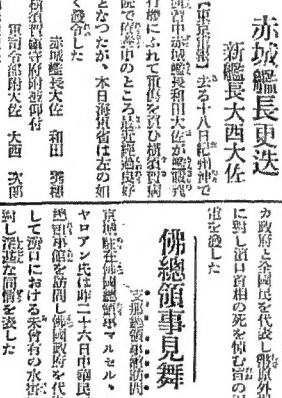 赤城艦長更迭
新艦長大西大佐
【東京電報】去る十八日紀州沖で
演習中赤城艦長和田大佐が
行機にふれて重傷を負ひ横須賀病
院で療養中のところ最近経過良好
となつたが、本日海軍省は左の如
く発令した
赤城艦長大佐 和田 秀穂
横須賀鎮守府附被仰付
軍司令部附大佐 大西 次郎
カ政府と全国民を代表し幣原外相
に対し濱口首相の死を悼む旨の
電を発した
佛總領事見舞
支那總領事館訪問
京城駐在佛國總領事マルセル・
ヤロアン氏は昨二十六日中華民
總領事館を訪問し佛國政府を代
して漢口における未曾有の水害
対し深甚な同情を表した